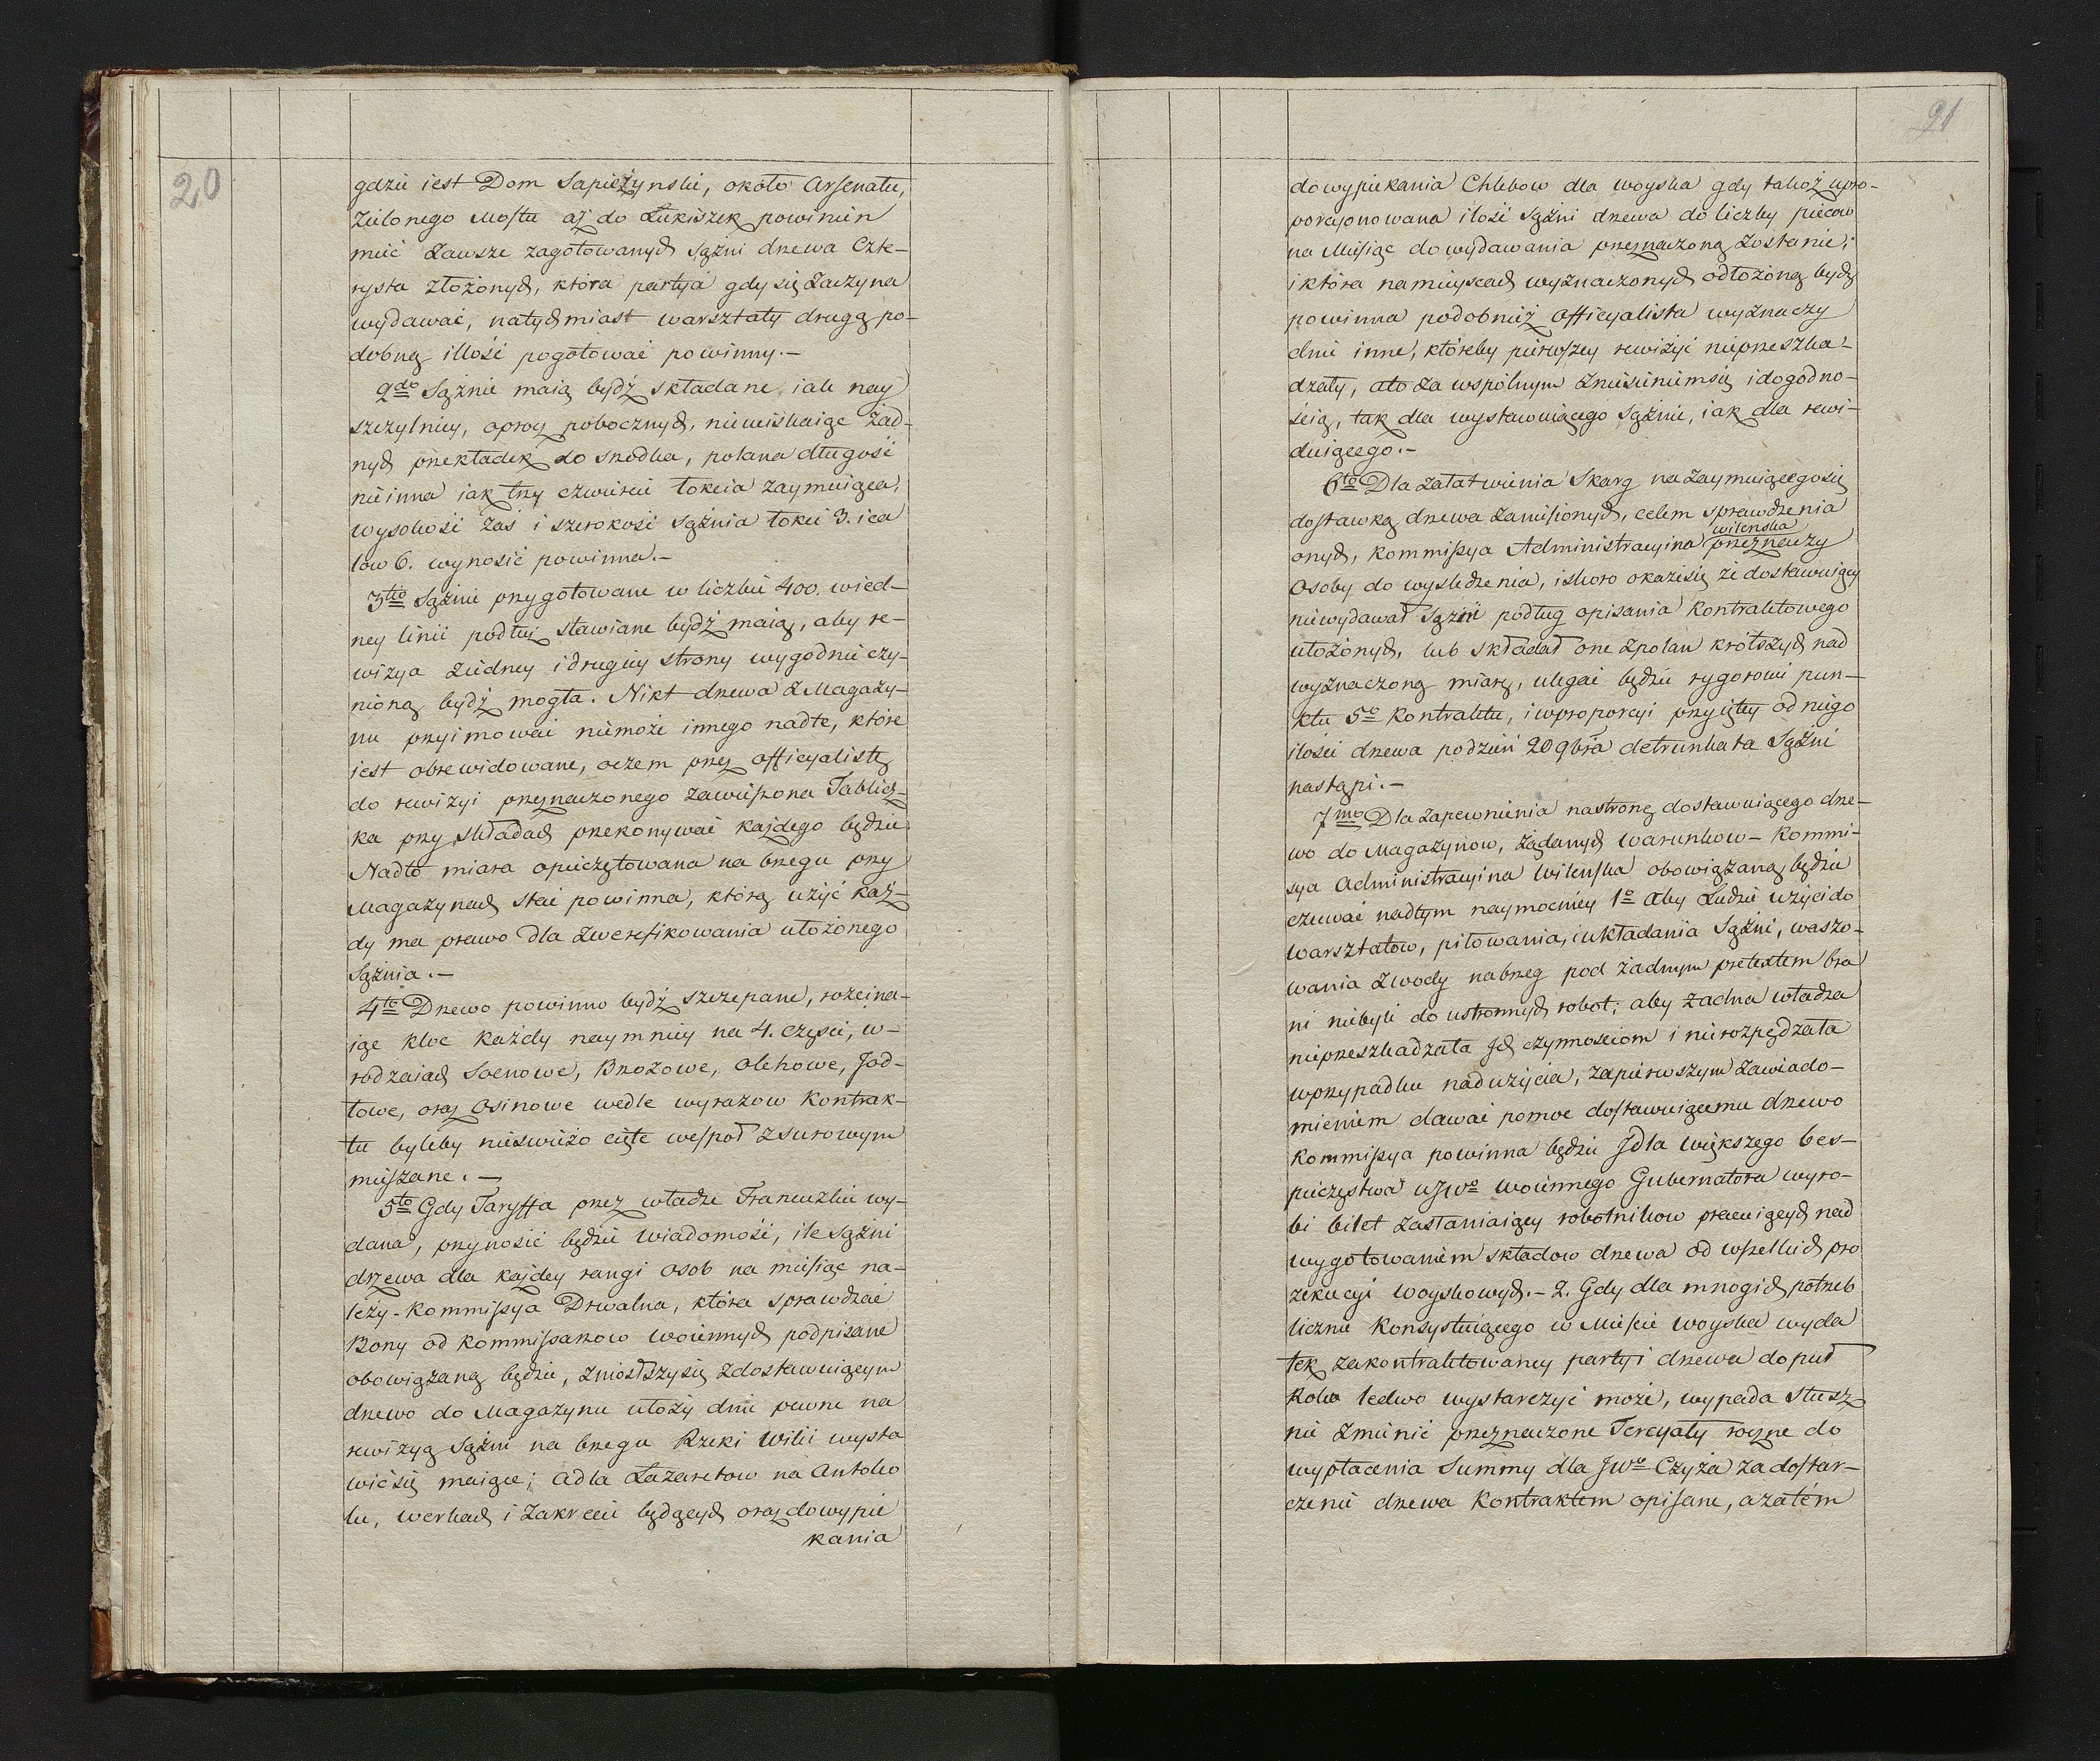 20
gdzie iest Dom Sapieżynski, około Arsenału,
Zielonego Mostu aż do Łukiszek powinien
mieć zawsze zagotowanych sążni drzewa Czte-
rysta złożonych, która partyia gdy się zaczyna
wydawać, natychmiast warsztaty drugą po-
dobną illość pogotować powinny.-
2do Sążnie maią bydź składane iak nay
szczylniey, oprocz pobocznych, niewiskaiąc żad-
nych przekładek do srodka, polana długość
nieinna iak trzy czwierci łokcia zaymuiąca,
wysokość zaś i szerokość sążnia łokci 3. ica
low 6. wynosić powinna.-
3tio Sążnie przygotowane w liczbie 400. wied-
ney linii podłuż stawiane bydź maią, aby re-
wizya ziedney idrugiey strony wygodnie czy-
nioną bydź mogła. Nikt drzewa zMagazy-
nu przyimować niemoże innego nadte, które
iest obrewidowane, oczem przez Officyalistę
do rewizyi przeznaczonego zawieszona Tablicz-
ka przy składach przekonywać każdego będzie
Nadto miara opieczętowana na brzegu przy
Magazynach stać powinna, którą użyć każ-
dy ma prawo dla zwerefikowania ułożonego
Sążnia.-
4to Drzewo powinno bydź szczepane, rozcina-
iąc kloc każdy naymniey na 4. Części, w-
rodzaiach Sosnowe, Brzozowe, Olchowe, Jod-
łowe, oraz Osinowe wedle wyrazow Kontrak-
tu byleby nieswieżo cięte wespoł zsurowym
mieszane.-
5to Gdy Taryffa przez władze Francuzkie wy-
dana, przynosić będzie wiadomość, ile sążni
drzewa dla każdey rangi osob na miesiąc na-
leży-Kommissya Drwalna, która sprawdzać
Bony od Kommissarzow woiennych podpisane
obowiązaną będzie, zniosłszysię zdostawuiącym
drzewo do Magazynu ułoży dnie pewne na
rewizyą Sążni na brzegu Rzeki Wilii wysta
wićsię maiące; Adla Lazaretow na Antoko
lu, Werkach i Zakrecie będących oraz dowypie
kania
91
dowypiekania Chlebow dla woyska gdy takoż upro-
porcyonowana ilość sążni drzewa do liczby piecow
na Miesiąc dowydawania przeznaczoną zostanie;
i która namieyscach wyznaczonych odłożoną bydź
powinna podobnież Officyalista wyznaczy
dnie inne, któreby pierwszey rewizyi nieprzeszka-
dzały, ato za wspólnym zniesieniemsię idogodno-
ścią, tak dla wystawuiącego Sążnie, iak dla rewi-
duiącego.-
6to Dla załatwienia Skarg na zaymuiącegosię
dostawką drzewa zaniesionych, celem sprawdzenia
wilenska
onych, Kommissya Administracyina przeznaczy
Osoby do wysledzenia, iskoro okażesię że dostawuiący
niewydawał Sążni podług opisania Kontraktowego
ułożonych, lub składał one zpolan krótszych nad
wyznaczoną miarę, ulegać będzie rygorowi pun-
ktu 5o Kontraktu, iwproporcyi przyiętey od niego
ilości drzewa podzień 20 9bra detrunkata Sążni
nastąpi.-
7mo Dla zapewnienia nastronę dostawuiącego drze-
wo do Magazynow, żądanych warunkow- Kommi-
sya Administracyina Wilenska obowiązaną będzie
czuwać nadtym naymocniey 1o Aby Ludzie użyci do
warsztatow, piłowania, iukładania Sążni, waszo-
wania zwody nabrzeg pod żadnym pretextem bra
ni niebyli do ustronnych robot; aby żadna władza
nieprzeszkadzała Jch czynnościom i nierozpędzała
wprzypadku nadużycia, zapierwszym zawiado-
mieniem dawać pomoc dostawuiącemu drzewo
Kommissya powinna będzie Jdla większego bes-
pieczęstwa uJWo woiennego Gubernatora wyro-
bi bilet zasłaniaiący robotnikow pracuiących nad
wygotowaniem składow drzewa od wszelkich pro
zekucyi woyskowych.- 2. Gdy dla mnogich potrzeb
licznie Konsystuiącego w Mieście Woyska wyda
tek zakontraktowaney partyi drzewa do puł
Roku ledwo wystarczyć może, wypada słusz
nie zmienić przeznaczone Tercyały roczne do
wypłacenia Summy dla JWo Czyża za dostar-
czenie drzewa Kontraktem opisane, azatém